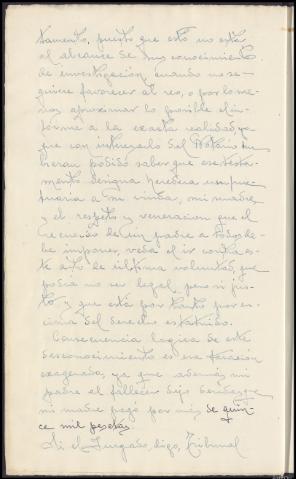 tamento, puesto que esto no está
al alcance de sus conocimientos
de investigación, cuando no se
quiere favorecer al reo, o por lo me-
nos aproximar lo posible el in-
forme a la exacta realidad, ya
que con interés del Notario hu-
bieran podido saber que ese testa-
mento designa heredera usufruc-
tuaria a su viuda, mi madre,
y el respeto y veneración que el
recuerdo de un padre a todos de-
be imponer, veda el ir contra es-
te acto de última voluntad, que
podía no ser legal, pero si jus-
to y que está por tanto por en-
cima del derecho estatuido.
Consecuencia lógica de este
desconocimiento es esa tasación
exagerada, ya que además mi
padre al fallecer dejó deudas, que
mi madre pagó por más de quin-
ce mil pesetas.
Si el Juzgado, digo, Tribunal